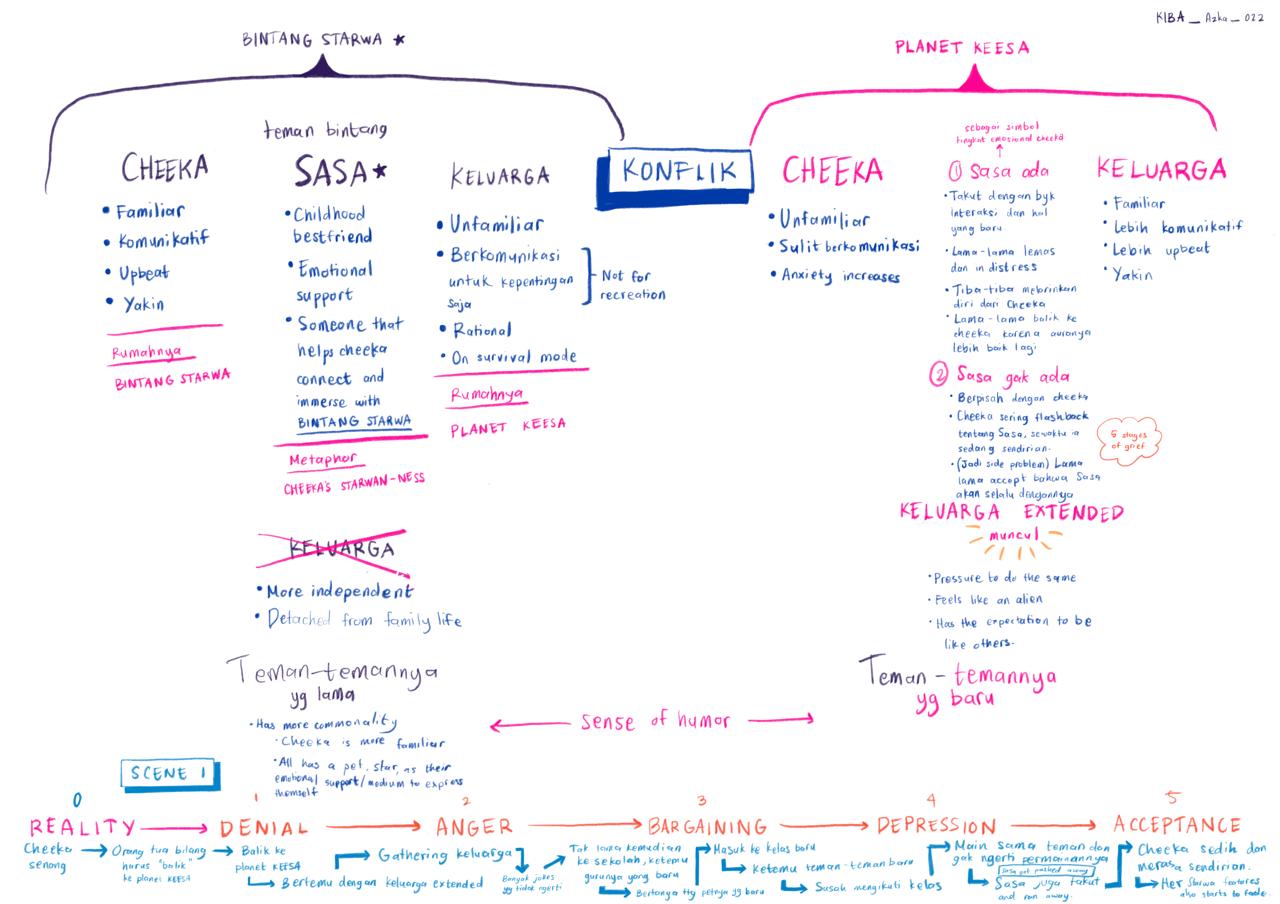 KIBA _ Azka _ 022
BINTANG STARWA
CHEEKA
• Familiar
• Komunikatif
• Upbeat
• Yakin
Rumahnya
BINTANG STARWA
teman bintang
SASA
• Childhood
bestfriend
• Emotional
support
• Someone that
helps cheeka
connect and
immerse with
BINTANG STARWA
Metaphor
CHEEKA'S STARWAN-NESS
KELUARGA
• Unfamiliar
• Berkomunikasi
untuk kepentingan
saja
Not for
recreation
• Rational
• On survival mode
Rumahnya
PLANET KEESA
KELUARGA
• More independent
• Detached from family life
Teman-temannya
yg lama
• Has more commonality
• Cheeka is more familiar
• All has a pet, star, as their
emotional support/medium to express
themself
KONFLIK
PLANET KEESA
CHEEKA
• Unfamiliar
• Sulit berkomunikasi
• Anxiety increases
sebagai simbol
tingkat emosional cheeka
① Sasa ada
• Takut dengan byk
interaksi dan hal
yang baru.
• Lama-lama lemas
dan in distress
• Tiba-tiba
diri dari Cheeka
• Lama-lama balik ke
cheeka karena auranya
lebih baik lagi
② Sasa gak ada
• Berpisah dengan cheeka
• Cheeka sering flashback
tentang Sasa, sewaktu ia
sedang sendirian.
• (Jadi side problem) Lama
lama accept bahwa Sasa
akan selalu dengannya
5 stages
of grief
KELUARGA
• Familiar
• Lebih komunikatif
• Lebih upbeat
• Yakin
KELUARGA EXTENDED
muncul
• Pressure to do the same
• Feels like an alien
• Has the expectation to be
like others.
Teman - temannya
yg baru
sense of humor
SCENE 1
0 1 2 3 4 5
REALITY DENIAL ANGER BARGAINING DEPRESSION ACCEPTANCE
Cheeka
senang
Orang tua bilang
harus "balik"
ke planet KEESA
Balik ke
planet KEESA
Bertemu dengan keluarga extended
Gathering keluarga
Banyak jokes
yg tidak ngerti
Tak lama kemudian
ke sekolah, ketemu
gurunya yang baru
Bertanya ttg petnya yg baru
Masuk ke kelas baru
Ketemu teman-teman baru
Susah mengikuti kelas
Main sama teman dan
gak ngerti permainannya
Sasa got passed away
Sasa juga takut
and ran away.
Cheeka sedih dan
merasa sendirian.
Her Starwa features
also starts to fade.